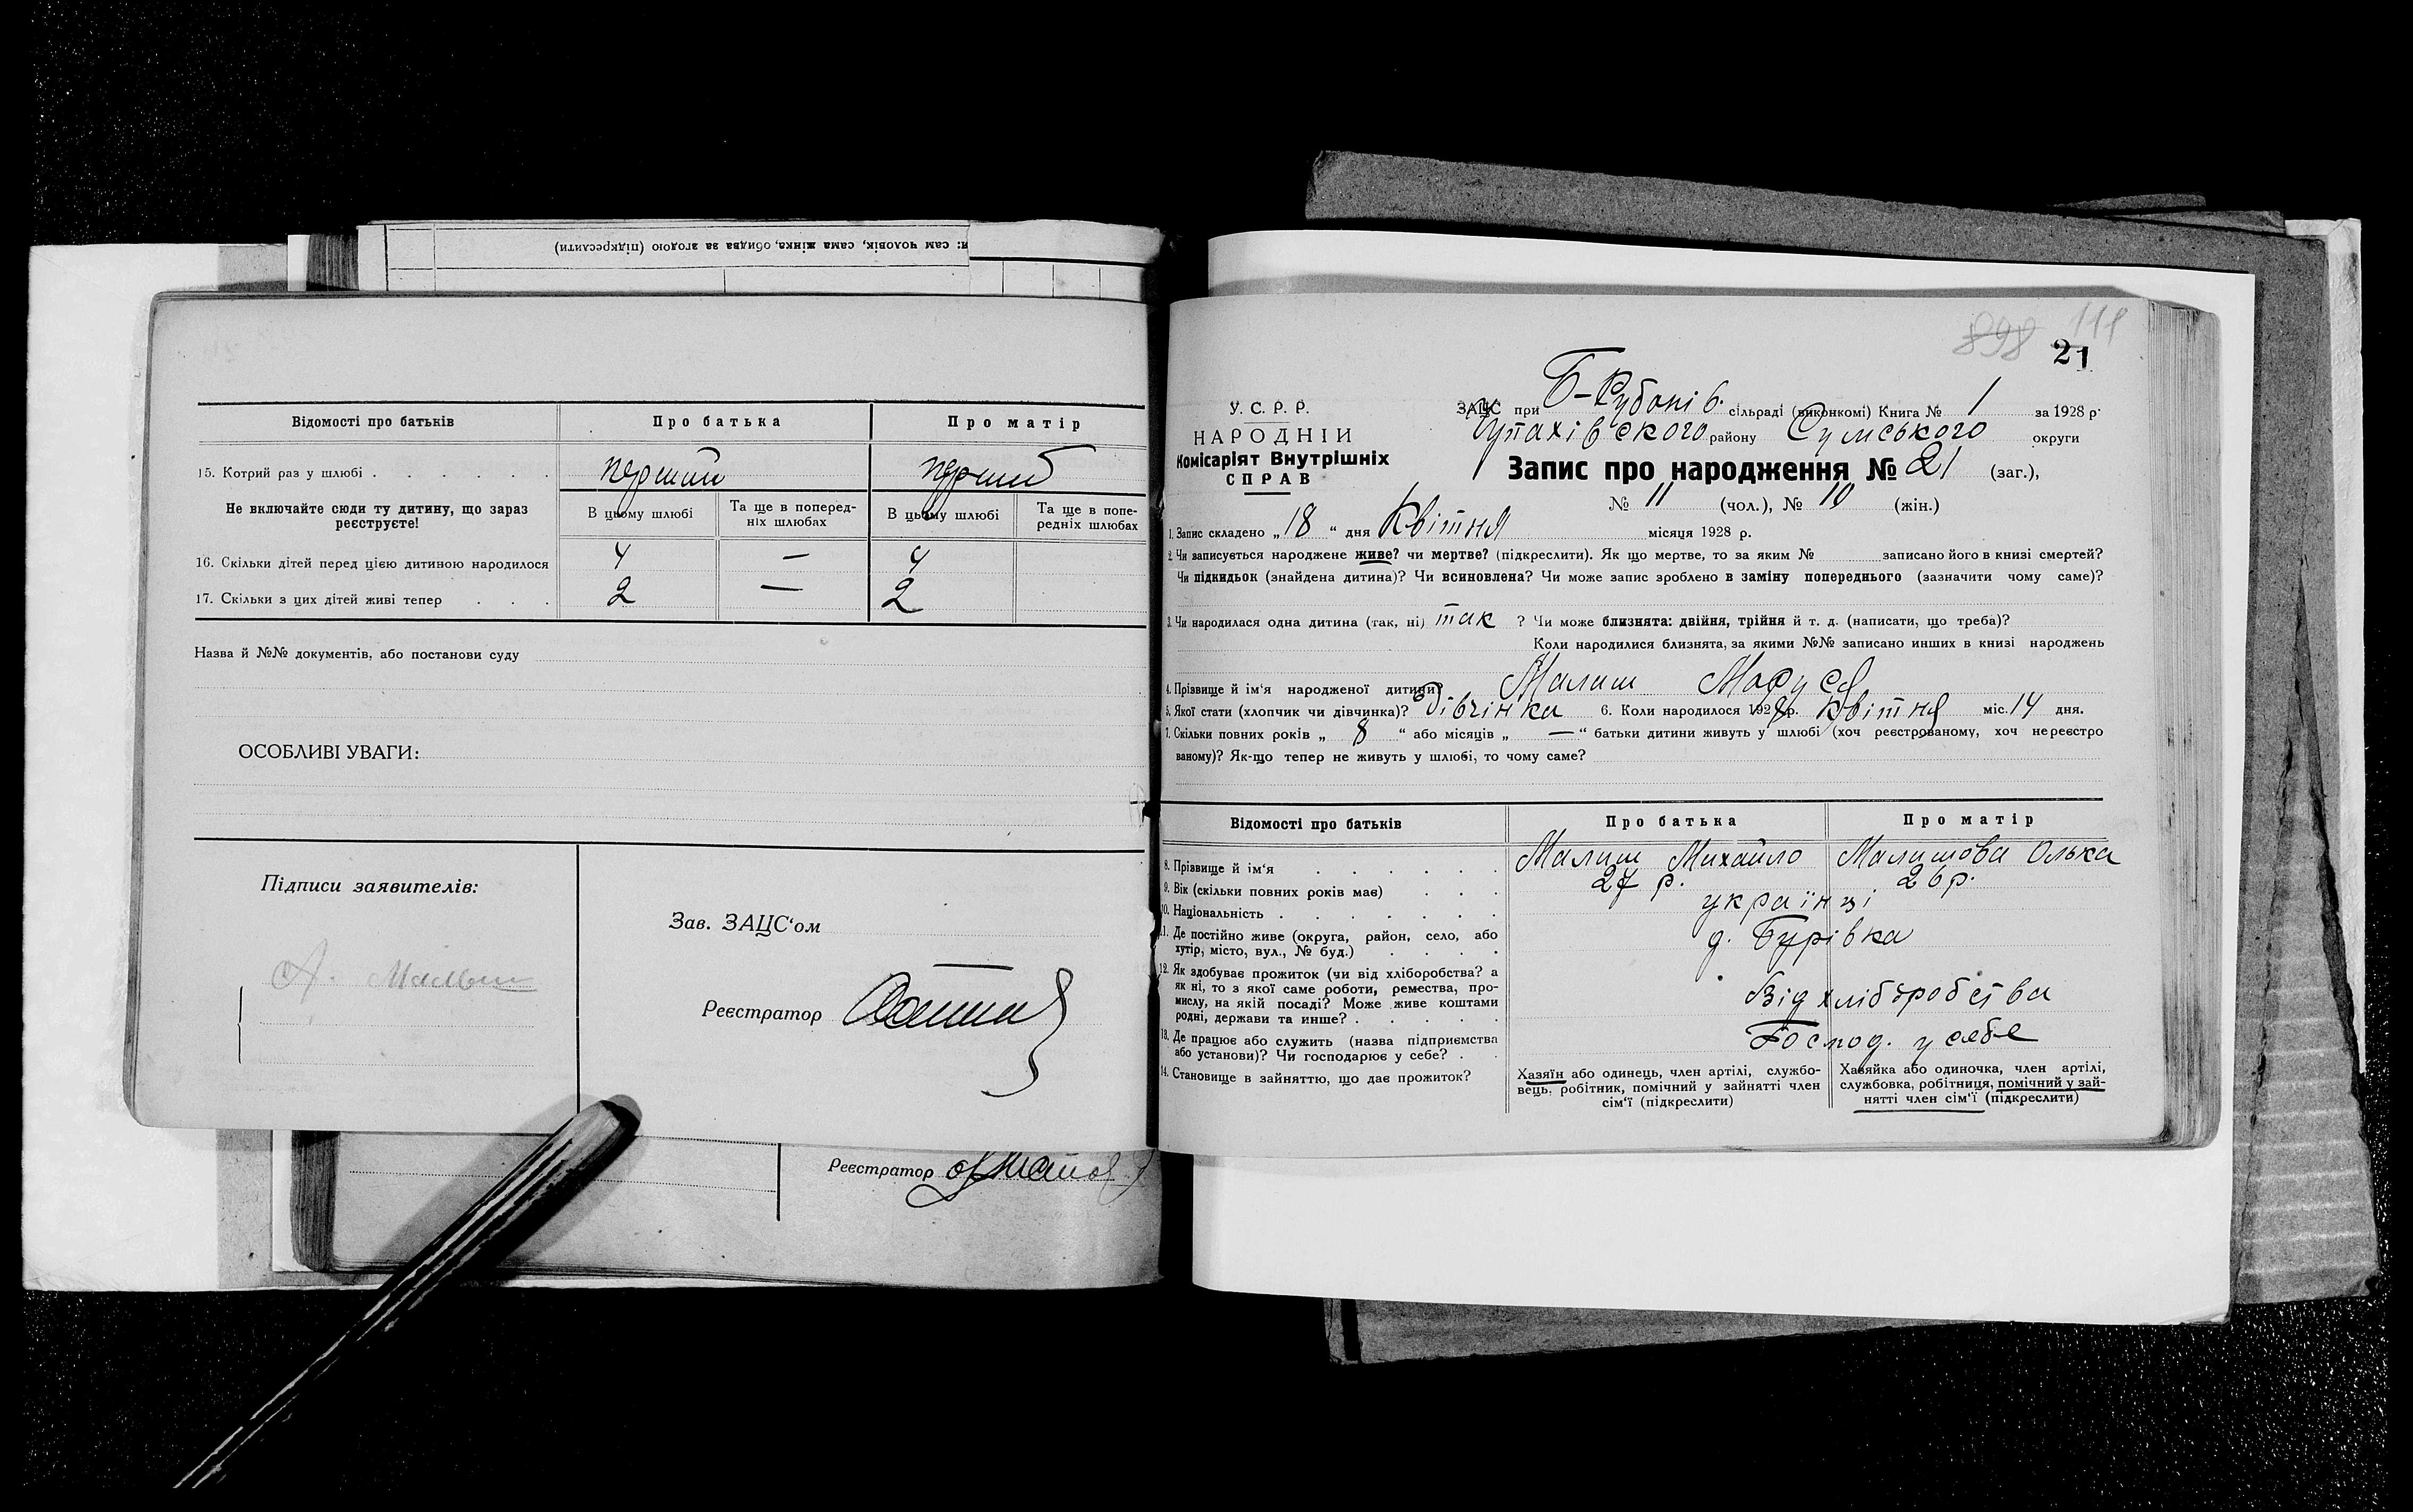 я: сам чоловік, сама жінка, обидва за згодою (підкреслити)
Відомості про батьків Про батька Про матір
15. Котрий раз у шлюбі перший перший
Не включайте сюди ту дитину, що зараз реєструєте!
В цьому шлюбі Та ще в поперед-ніх шлюбах В цьому шлюбі Та ще в попе-редніх шлюбах
16. Скільки дітей перед цією дитиною народилося 4 — 4
17. Скільки з цих дітей живі тепер 2 — 2
Назва й №№ документів, або постанови суду
ОСОБЛИВІ УВАГИ:
Підписи заявителів:
Зав. ЗАЦС'ом —
Реєстратор
Реєстратор
898 111
21
У. С. Р. Р.
НАРОДНІЙ
Комісаріят Внутрішніх
СПРАВ
ЗАЦС при Б-Рубанів. сільраді (виконкомі) Книга № 1 за 1928 р.
Чупахівського району Сумського округи
Запис про народження № 21 (заг.),
№ 11 (чол.), № 10 (жін.)
1. Запис складено „ 18 “ дня Квітня місяця 1928 р.
2. Чи записується народжене живе? чи мертве? (підкреслити). Як що мертве, то за яким № записано його в книзі смертей?
Чи підкидьок (знайдена дитина)? Чи всиновлена? Чи може запис зроблено в заміну попереднього (зазначити чому саме)?
3. Чи народилася одна дитина (так, ні) так ? Чи може близнята: двійня, трійня й т. д. (написати, що треба)?
Коли народилися близнята, за якими №№ записано инших в книзі народжень
4. Прізвище й ім'я народженої дитини? Малиш Маруся
5. Якої стати (хлопчик чи дівчинка)? дівчінка 6. Коли народилося 1928 р. Квітня міс. 14 дня.
7. Скільки повних років „ 8 “ або місяців „ — “ батьки дитини живуть у шлюбі (хоч реєстрованому, хоч нереєстро
ваному)? Як-що тепер не живуть у шлюбі, то чому саме?
Відомості про батьків Про батька Про матір
8. Прізвище й ім'я Малиш Михайло Малишова Олька
9. Вік (скільки повних років має) 27 р. 26 р.
10. Національність українці
11. Де постійно живе (округа, район, село, або хутір, місто, вул., № буд.) д. Бурівка
12. Як здобуває прожиток (чи від хліборобства? а як ні, то з якої саме роботи, ремества, про-мислу, на якій посаді? Може живе коштами родні, держави та инше? Від хліборобства
13. Де працює або служить (назва підприємства або установи)? Чи господарює у себе? Господ. у себе
14. Становище в зайняттю, що дає прожиток?
Хазяїн або одинець, член артілі, службо-вець, робітник, помічний у зайнятті член сім'ї (підкреслити)
Хазяйка або одиночка, член артілі, службовка, робітниця, помічний у зай-нятті член сім'ї (підкреслити)